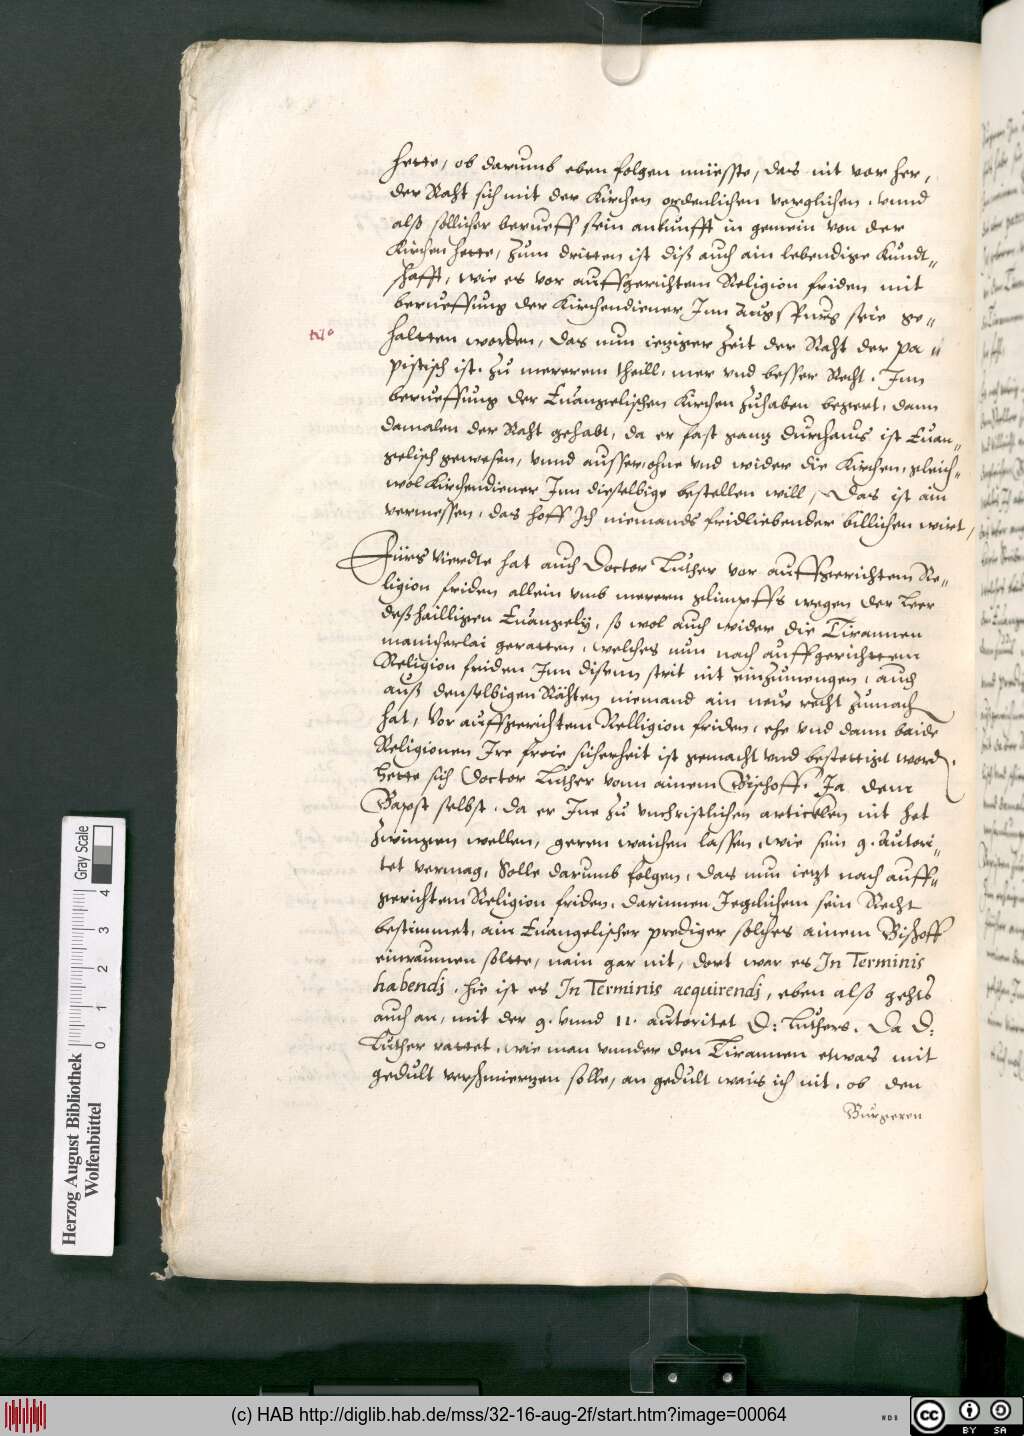 hette, ob darumb eben folgen müesste, das nit vor her,
der Raht sich mit der Kirchen ordenlichen verglichen, vnnd
alß sollicher berueff sein ankunfft in gemein von der
Kirchen hette, Zum dritten ist diß auch ain lebendige Kundt„
schafft, wie es vor auffgerichtem Religion friden mit
berueffung der Kirchendiener Inn Augspurg seie ge„
No
haltten worden, das nun ietziger Zeit der Raht der pa„
pistisch ist, zu mererem theill, mer vnd besser Recht, Inn
berueffung der Euangelischen Kirchen zuhaben begert, dann
damalen der Raht gehabt, da er fast gantz durchaus ist Euan„
gelisch gewesen, vnnd ausser, ohne vnd wider die Kirchen, gleich„
wol Kirchendiener Inn dieselbige bestellen will, Das ist ain
vermessen, das hoff Ich niemands fridliebender billichen wirt,
Fürs Vierdte hat auch Doctor Luther vor auffgerichtem Re„
ligion friden allein vmb merern glimpffs wegen der Leer
deß hailligen Euangelij, so wol auch wider die Tirannen
manicherlai geratten, welches nun nach auffgerichttem
Religion friden Inn disenn strit nit einzumengen, auch
auß denselbigen Rähten niemand ain neuw recht zumach
hat, Vor auffgerichtem Relligion friden, ehe vnd dann baide
Religionen Ire freie sicherheit ist gemacht vnd bestettiget word,
Hette sich Doctor Luther vonn ainem Bischoff, Ja dem
Bapst selbst, da er Ine zu vnchristlichen articklen nit het
zwingen wellen, geren waichen lassen, wie sein 9. Autori„
tet vermag, Solle darumb folgen, das nun ietzt nach auff„
gerichtem Religion friden, darinnen Jegclichem sein Recht
bestimmet, ain Euangelischer prediger solches ainem Bischoff
einraumen soltte, nain gar nit, dort war es In Terminis
habendj, hie ist es In Terminis acquirendj, eben also gehts
auch an, mit der 9. vnnd 11. autoritet D: Luthers, Da D:
Luther rattet, wie man vnnder den Tirannen etwas mit
gedult verschmiertzen solle, an gedult wais ich nit, ob den
Burgeren
Herzog August Bibliothek
Wolfenbüttel
0 1 2 3 4
Gray Scale
(c) HAB http://diglib.hab.de/mss/32-16-aug-2f/start.htm?image=00064
WDB
cc BY SA